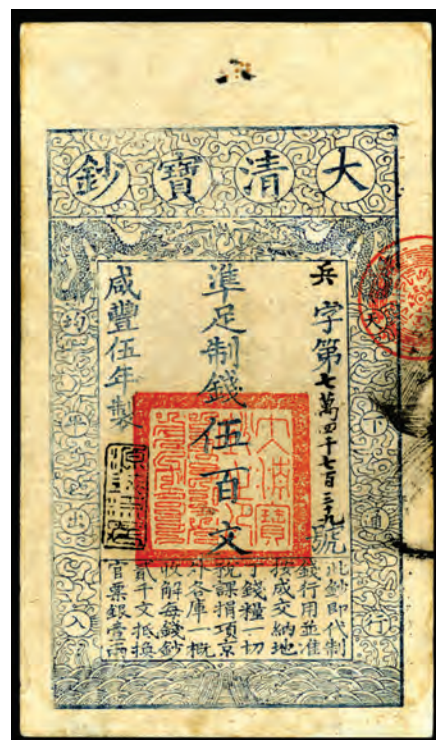 大清寶鈔
天下通行
兵字第七萬四千七百三十九號
準足制錢伍百文
咸豐伍年製
均平出入
此鈔即代制
錢行用並准
按成交納地
丁錢糧一切
稅課捐項京
外各庫一概
收解每錢鈔
貳千文抵換
官票銀壹兩